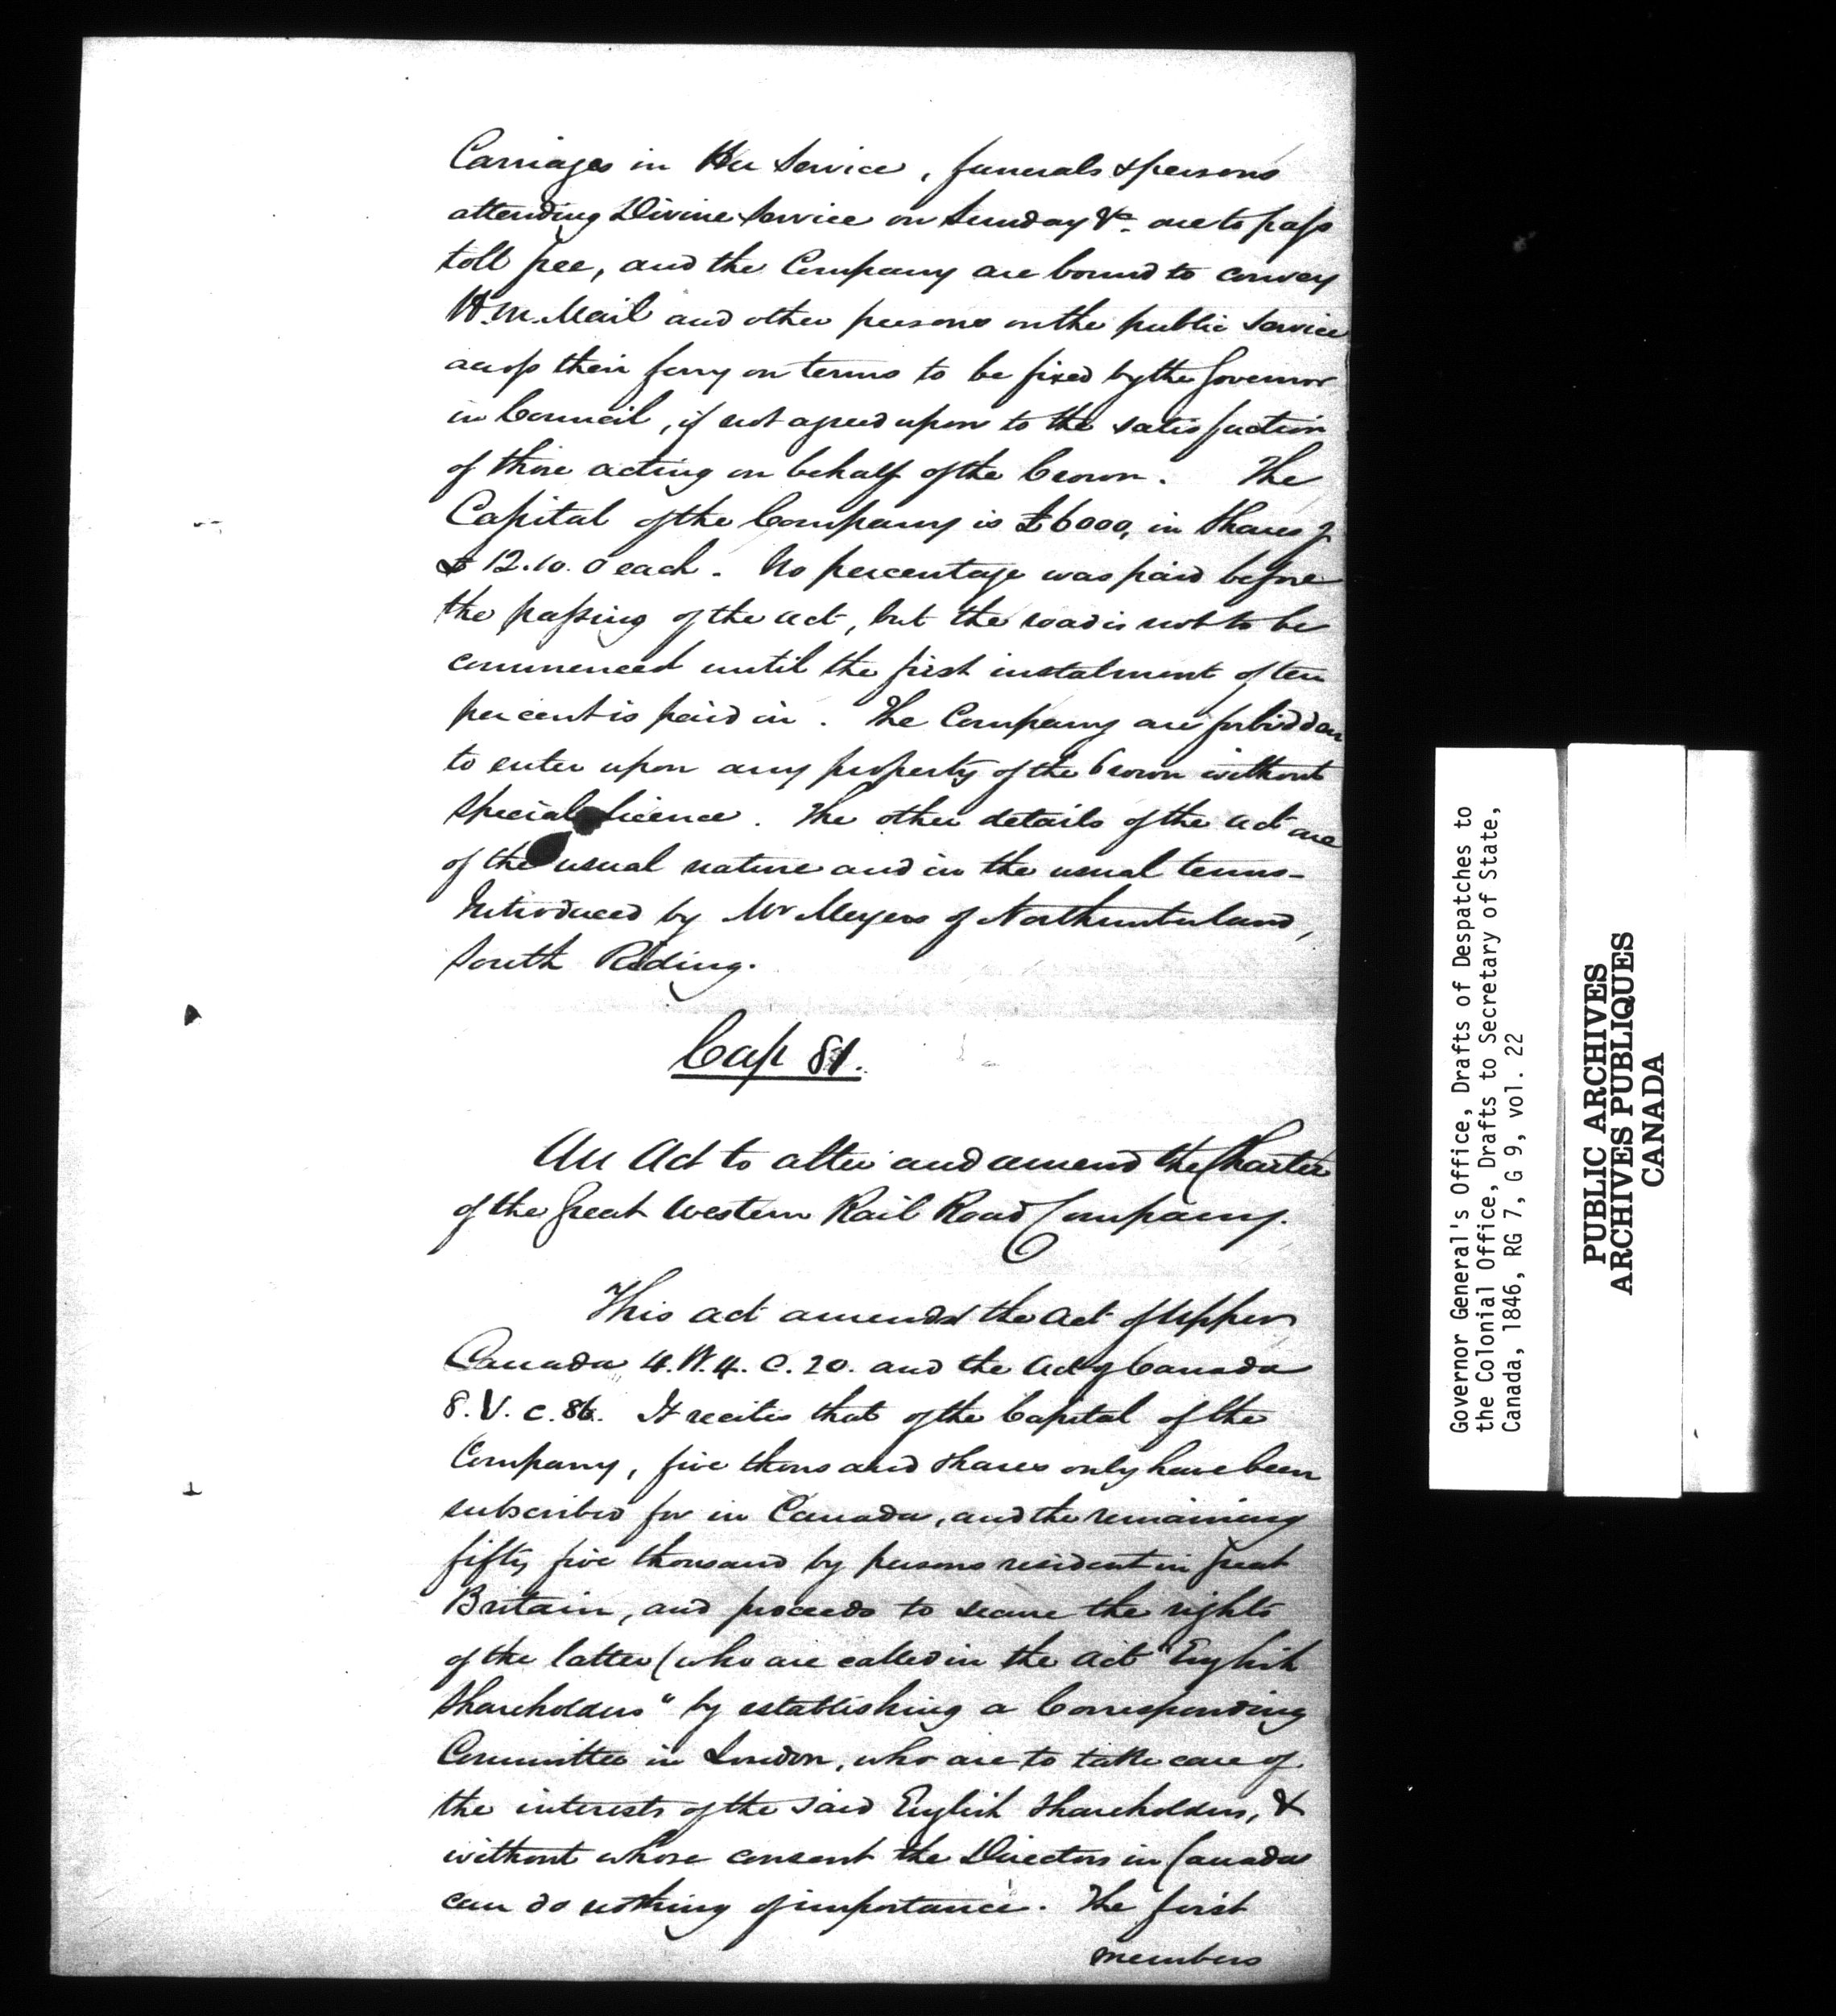 Carriages in Her Service, funerals & persons
attending Divine Service on Sunday &c. are to pass
toll free, and the Company are bound to convey
H.M. Mail and other persons on the public Service
across their ferry on terms to be fixed by the Governor
in Council, if not agreed upon to the satisfaction
of those acting on behalf of the Crown. The
Capital of the Company is £6000, in Shares of
£12.10.0 each. No percentage was paid before
the passing of the act, but the road is not to be
commenced until the first instalment of ten
per cent is paid in. The Company are forbidden
to enter upon any property of the Crown without
special licence. The other details of the act are
of the usual nature and in the usual terms-
Introduced by Mr Meyers of Northumberland,
South Riding.
Cap 81.
An Act to alter and amend the Charter
of the Great Western Rail Road Company.
This act amends the act of Upper
Canada 4.W.4. C.20. and the act of Canada
8.V. c.86. It recites that of the Capital of the
Company, five thousand shares only have been
subscribed for in Canada, and the remaining
fifty five thousand by persons resident in Great
Britain, and proceeds to secure the rights
of the latter (who are called in the act "English
Shareholders" by establishing a Corresponding
Committee in London, who are to take care of
the interests of the said English Shareholders, &
without whose consent the Directors in Canada
can do nothing of importance. The first
members
Governor General's Office, Drafts of Despatches to
the Colonial Office, Drafts to Secretary of State,
Canada, 1846, RG 7, G 9, vol. 22
PUBLIC ARCHIVES
ARCHIVES PUBLIQUES
CANADA